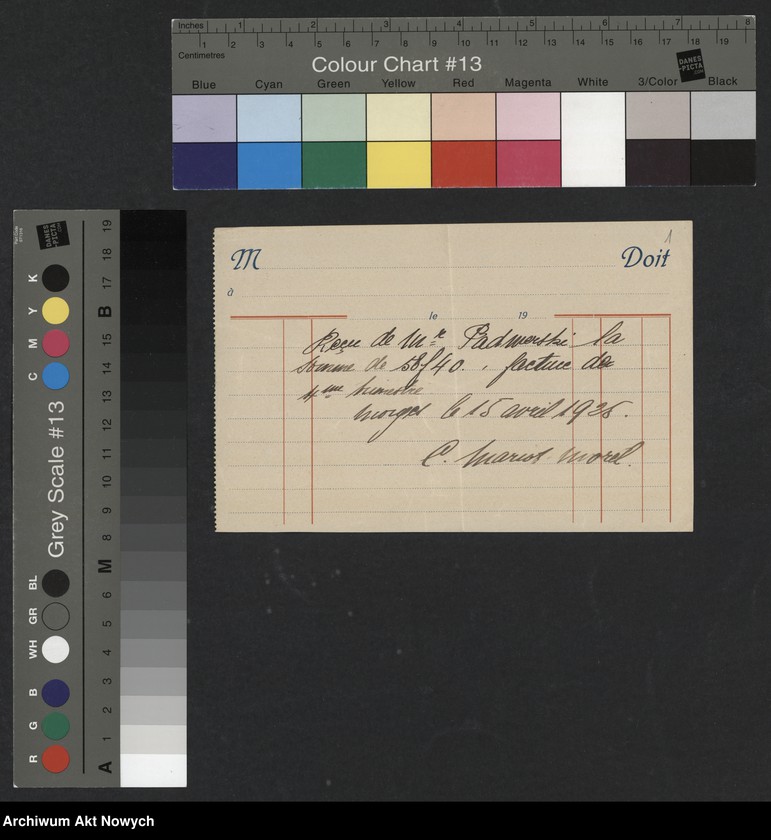 Inches 1 2 3 4 5 6 7 8
1 2 3 4 5 6 7 8 9 10 11 12 13 14 15 16 17 18 19
Centimetres
Colour Chart #13
DANES
-PICTA
.COM
Blue Cyan Green Yellow Red Magenta White 3/Color Black
1
M Doit
à
le 19
Reçu de Mr Padmerski la
somme de 58f40. facture du
4me trimestre
Morges le 15 avril 1925.
C. Mariot-Morel.
Grey Scale #13
DANES
-PICTA
.COM
K Y M C
BL GR WH B G R
19 18 17 B 15 14 13 12 11 10 9 8 M 6 5 4 3 2 1 A
Archiwum Akt Nowych